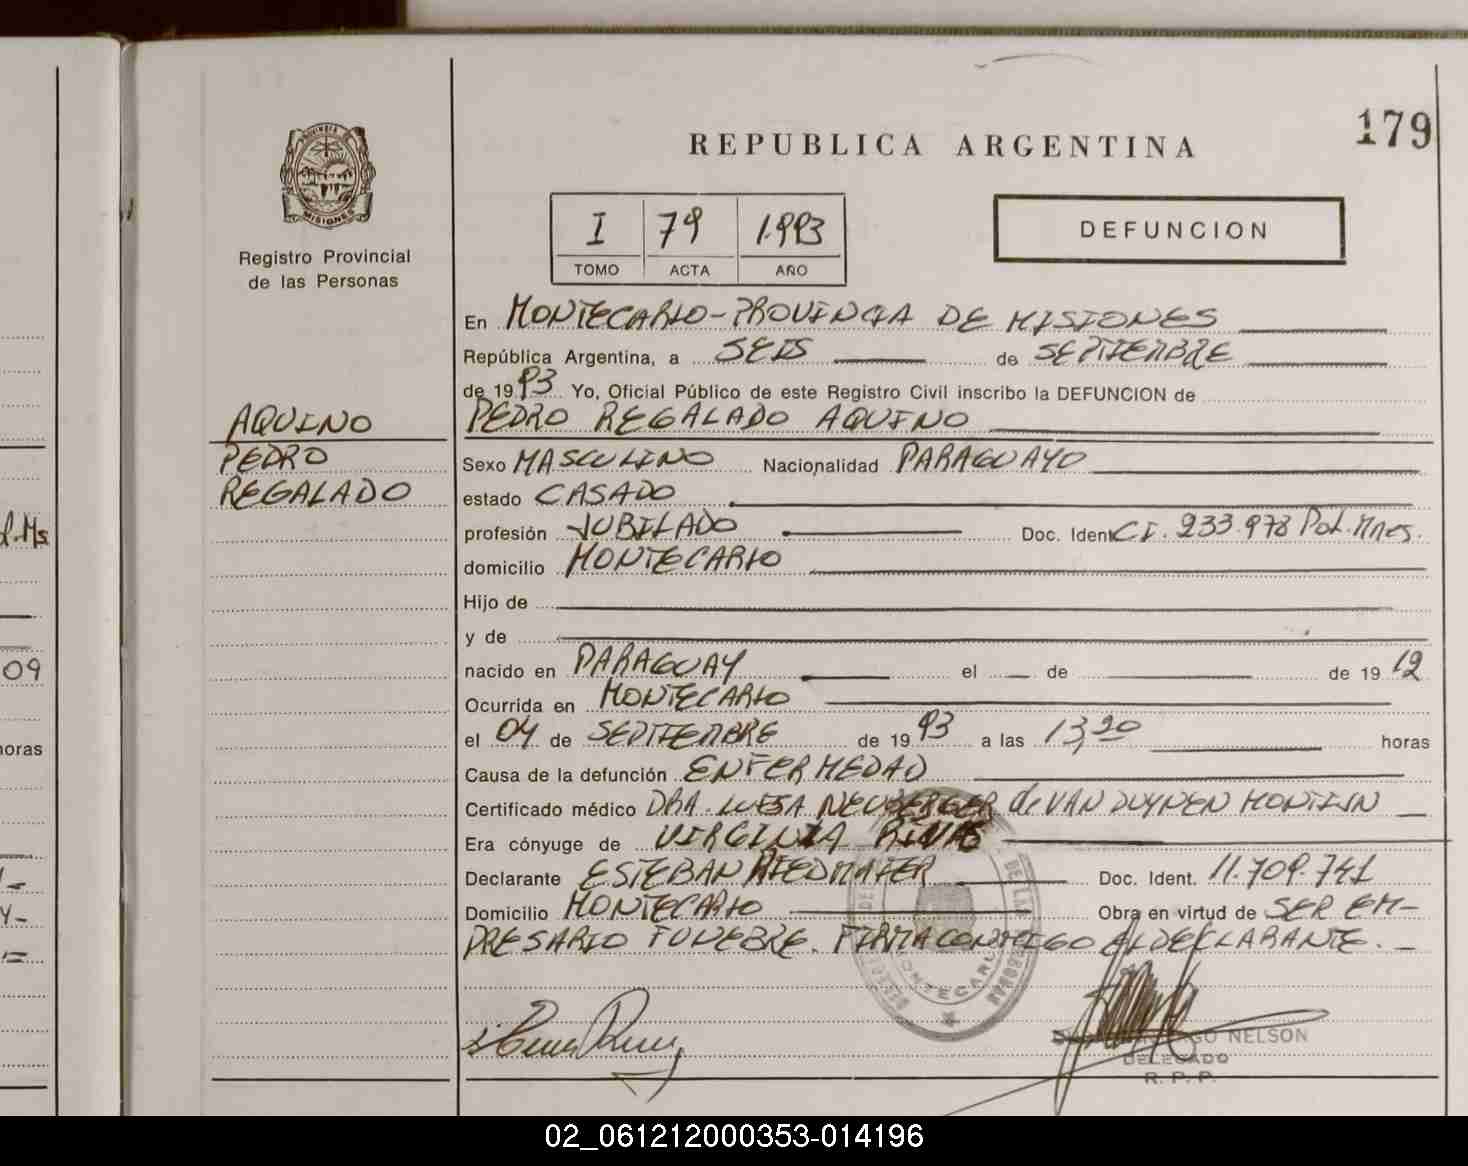 179
REPUBLICA ARGENTINA
PROVINCIA DE
MISIONES
Registro Provincial
de las Personas
I 79 1.993
TOMO ACTA AÑO
DEFUNCION
En MONTECARLO-PROVINCIA DE MISIONES
República Argentina, a SEIS de SEPTIEMBRE
de 1993 Yo, Oficial Público de este Registro Civil inscribo la DEFUNCION de
AQUINO
PEDRO REGALADO AQUINO
PEDRO
Sexo MASCULINO Nacionalidad PARAGUAYO
REGALADO
estado CASADO
profesión JUBILADO Doc. Ident C.I. 233.978 Pol. Mnes.
domicilio MONTECARLO
Hijo de
y de
nacido en PARAGUAY el de de 1912
Ocurrida en MONTECARLO
el 04 de SEPTIEMBRE de 1993 a las 13,20 horas
Causa de la defunción ENFERMEDAD
Certificado médico DRA. LUISA NEUBERGER de VAN DUYNEN
Era cónyuge de VIRGINIA RIVAS
Declarante ESTEBAN RIEDMAIER Doc. Ident. 11.709.741
Domicilio MONTECARLO Obra en virtud de SER EM-
PRESARIO FUNEBRE. FIRMA CONMIGO EL DECLARANTE.
MONTECARLO
NELSON
DELEGADO
R. P. P.
09
horas
02_061212000353-014196